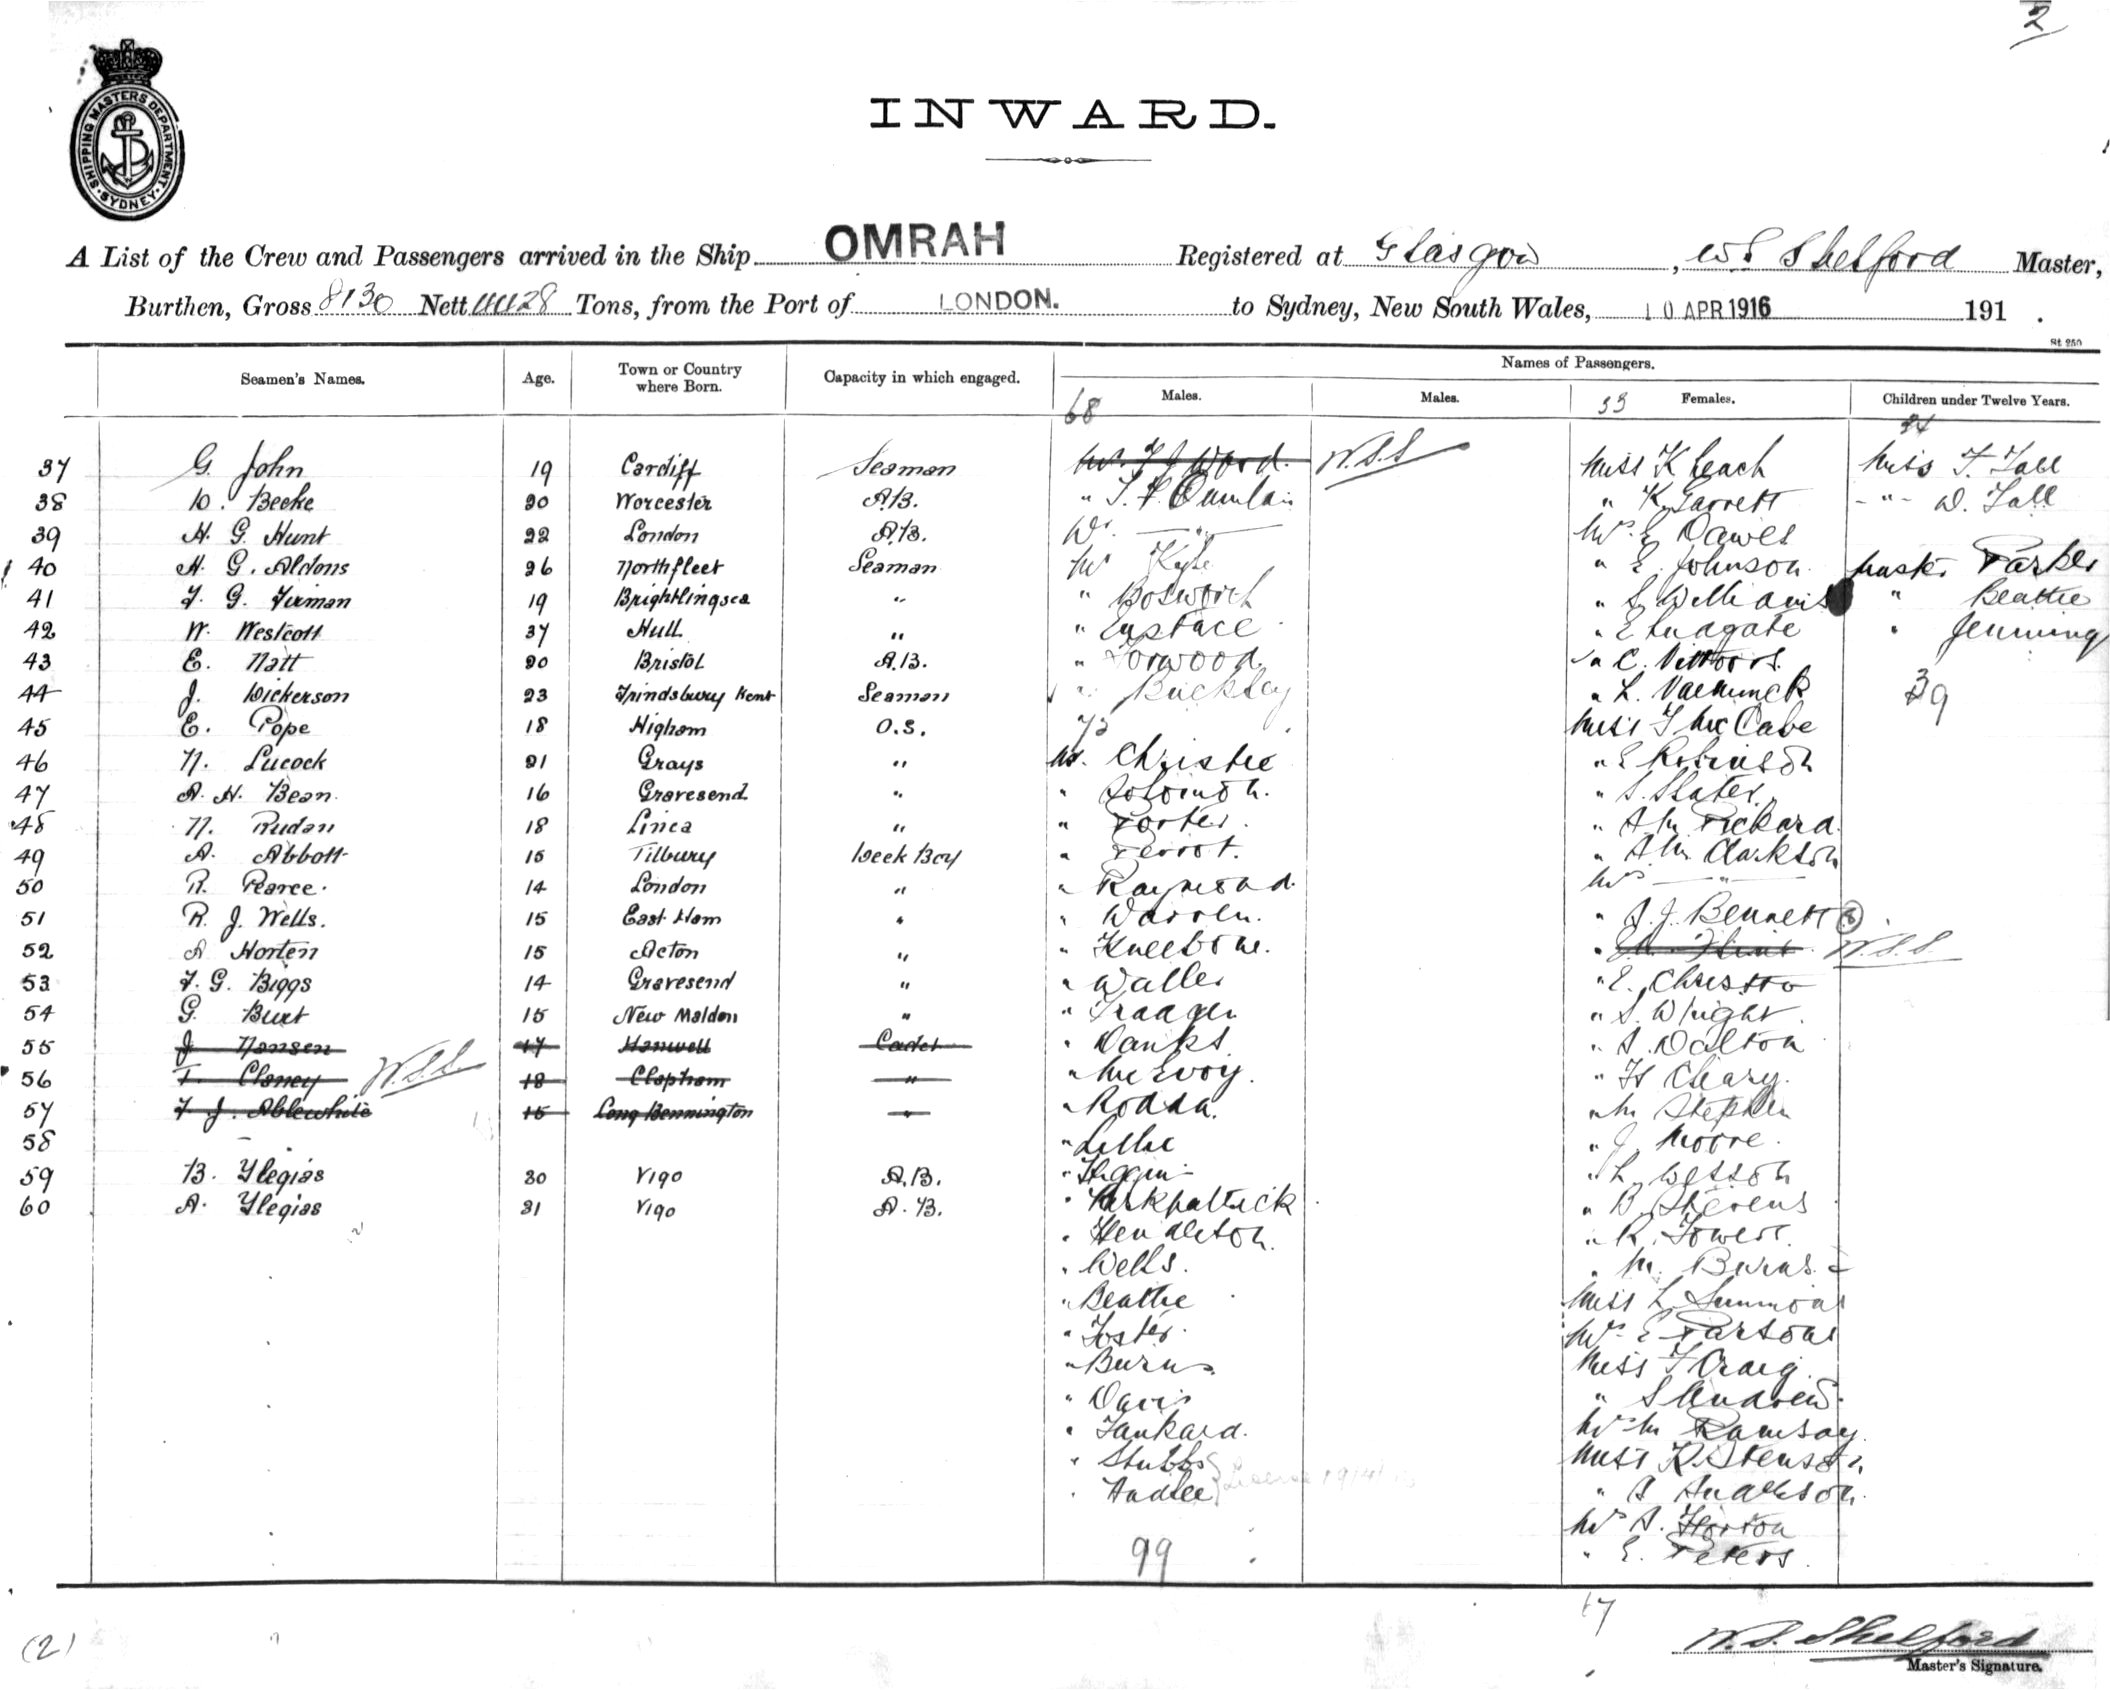 2
SHIPPING MASTERS DEPARTMENT
SYDNEY
INWARD.
A List of the Crew and Passengers arrived in the Ship OMRAH Registered at Glasgow, W S Shelford Master,
Burthen, Gross 8130 Nett 4428 Tons, from the Port of LONDON. to Sydney, New South Wales, 10 APR 1916 191 .
St 250
Names of Passengers.
Seamen's Names. Age. Town or Country where Born. Capacity in which engaged. Males. Males. Females. Children under Twelve Years.
68 33 34
37 G. John 19 Cardiff Seaman Mr. F J Wood. W.S.S Miss K Leach Miss F. Tall
38 D. Beeke 20 Worcester A.B. " T. P. Quinlan " K. Garrett - " - D. Tall
39 H. G. Hunt 22 London A.B. Dr. — " — Mrs E Dawes
40 H. G. Aldons 26 Northfleet Seaman Mr Kyle " E. Johnson Master Parker
41 F. G. Firman 19 Brightlingsea " " Bosworth " S Williams " Beattie
42 W. Westcott 37 Hull " " Eustace " E Ludgate " Jenning
43 E. Natt 20 Bristol A.B. " Norwood " C.
44 J. Dickerson 23 Frindsbury Kent Seaman " Buckley " L. 39
45 E. Pope 18 Higham O.S. 73 Miss F McCabe
46 N. Lucock 21 Grays " Mr. Christie " E Robinson
47 A. H. Bean. 16 Gravesend " " Solomon. " S. Slater.
48 N. Rudan 18 Linea " " Porter. " A M Pickard.
49 A. Abbott 15 Tilbury Deck Boy " Perrot. " A M Clarkson
50 R. Pearce. 14 London " " Raymond. Mrs — " —
51 R. J. Wells. 15 East Ham " " Warren. " A. J. Bennett
52 A Horten 15 Acton " " Kneebone. " Flint W.S.S.
53 F. G. Biggs 14 Gravesend " " Waller " E. Christto
54 G. Burt 15 New Maldon " " Traager " S. Wright.
55 J Nansen 17 Hanwell Cadet " Danks " A. Dalton
56 T. Claney W.S.S. 18 Clapham " " McEvoy. " H Cleary.
57 F J. Ablewhite 15 Long Bennington " " Rodda. " M Stephen
58 - " Lillie " J Moore.
59 B. Ylegias 30 Vigo A.B. " Higgin " L. Wesson
60 A. Ylegias 31 Vigo A.B. " Kirkpatrick " B. Stevens
" Hendleton. " R. Towers.
" Wells. " M. Burns.
" Beattie Miss L. Simmons
" Foster. Mrs E Parsons
" Burns Miss F Craig
" Davis " S Andrews
" Tankard. Mrs M Ramsay.
" Stubbs Miss R Stenson
" Hadlee " A Anderson.
Mrs A. Horton
99 " E. Peters.
17
(2)
W. S. Shelford
Master's Signature.